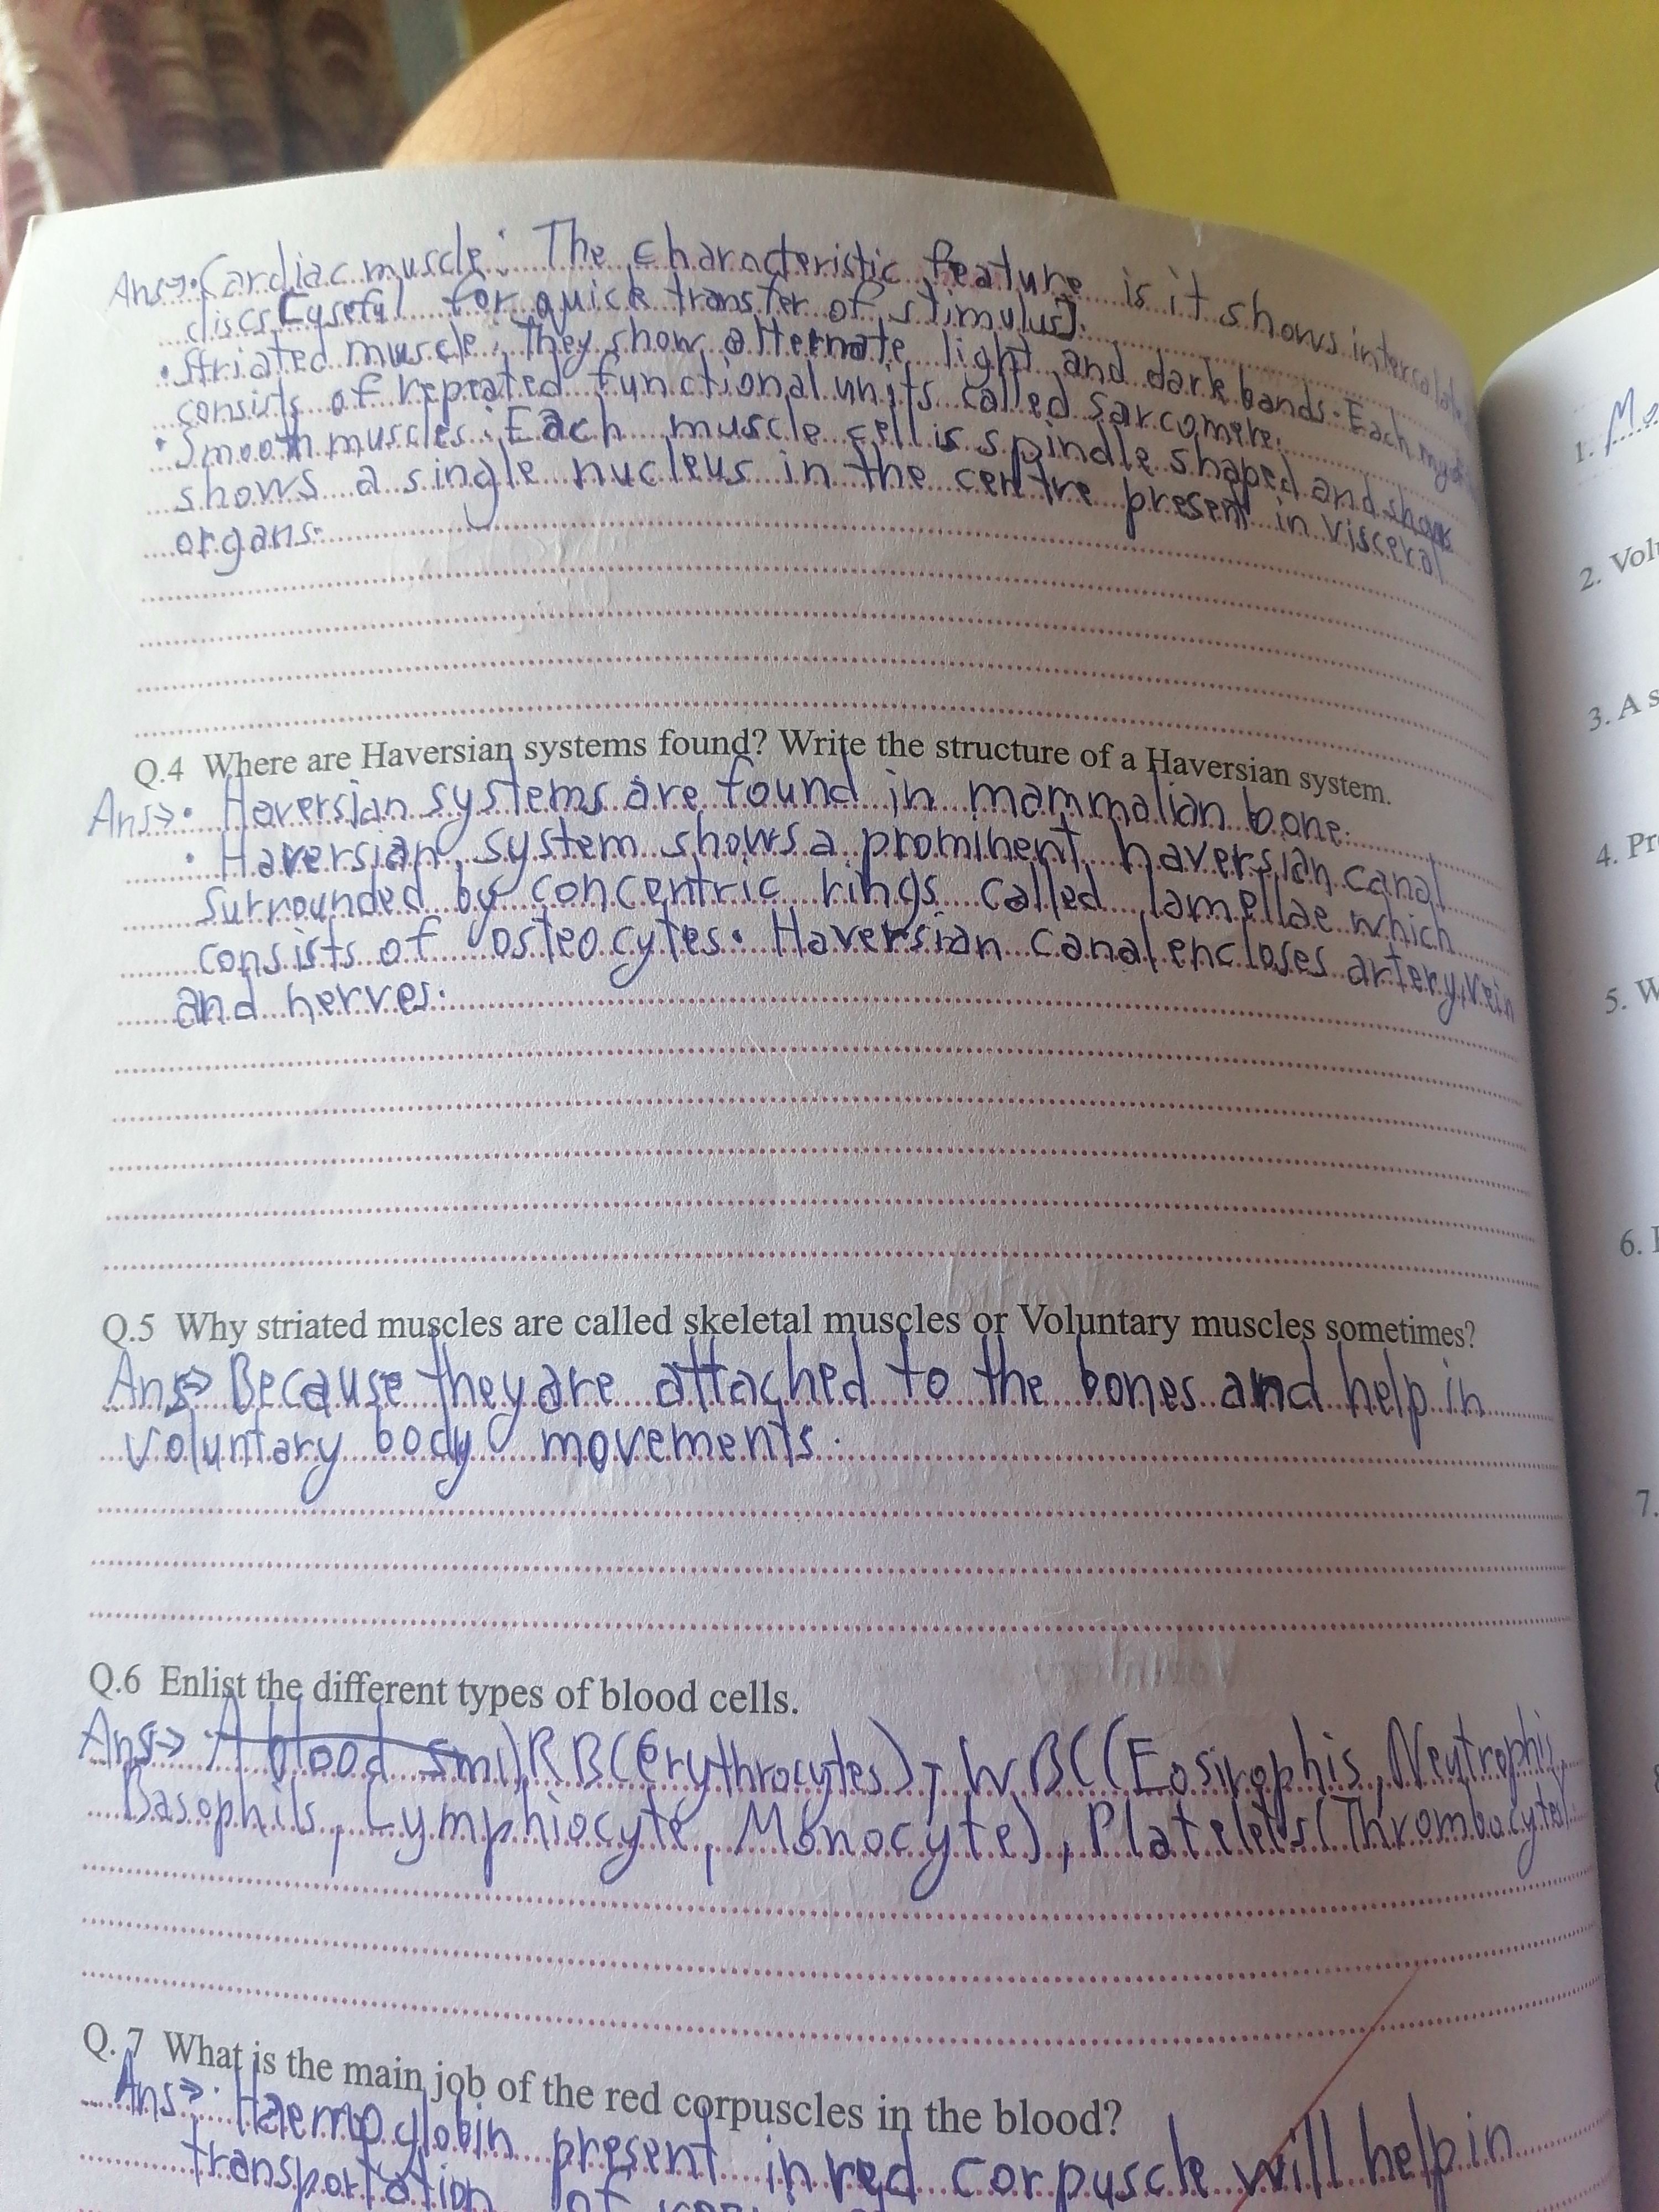 Ans→• Cardiac muscle: The characteristic feature is it shows
discs [useful for quick transfer of stimulus].
• Striated muscle: They show alternate light and dark bands. Each
consists of repeated functional units called sarcomere.
• Smooth muscles: Each muscle cell is spindle shaped and show
shows a single nucleus in the centre present in visceral
organs.
1.
2. Vol
3. A s
Q.4 Where are Haversian systems found? Write the structure of a Haversian system.
Ans→• Haversian systems are found in mammalian bone.
• Haversian system shows a prominent haversian canal
surrounded by concentric rings called lamellae which
consists of osteocytes. Haversian canal encloses artery, vein
and nerves.
4. Pr
5. W
6.
Q.5 Why striated muscles are called skeletal muscles or Voluntary muscles sometimes?
Ans→ Because they are attached to the bones and help in
voluntary body movements.
7.
Q.6 Enlist the different types of blood cells.
Ans→ RBC (erythrocytes), WBC (Eosinophis, Neutrophis,
Basophils, Lymphiocyte, Monocyte), Platelets (Thrombocytes).
Q.7 What is the main job of the red corpuscles in the blood?
Ans→• Haemoglobin present in red corpuscle will help in
transportation of